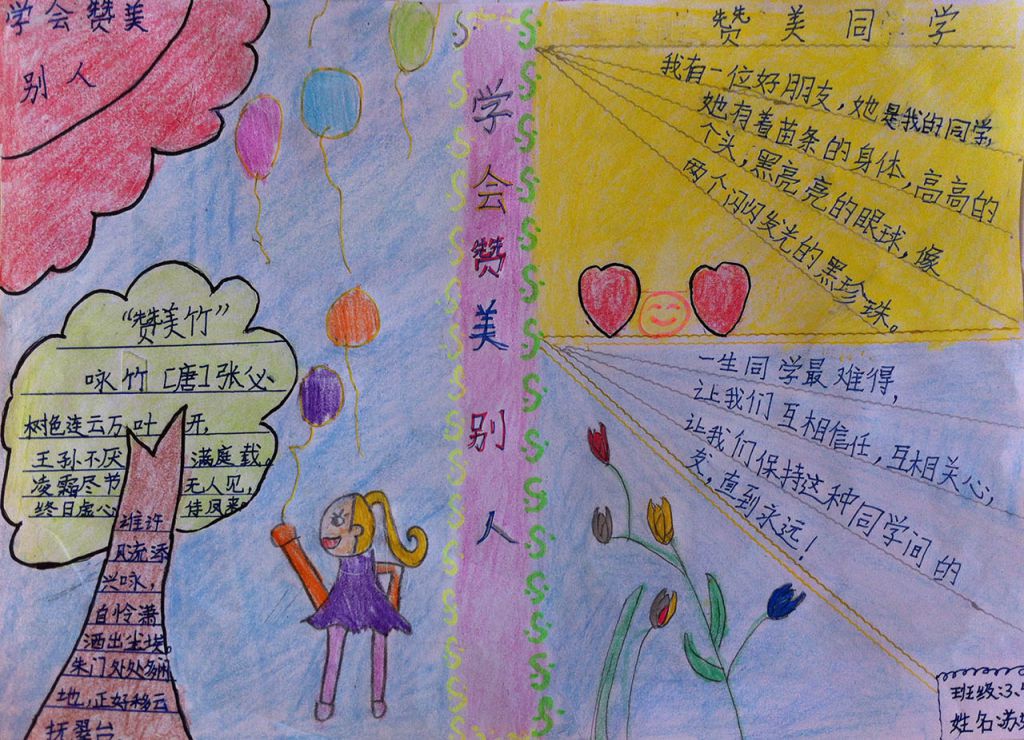 学会赞美
别人
“赞美竹”
咏竹 [唐]张必
树色连云万叶开,
王孙不厌满庭栽。
凌霜尽节无人见,
终日虚心待凤来。
谁许
风流添
兴咏,
自怜潇
洒出尘埃。
朱门处处多闲
地,正好移云
抚翠台
学会赞美别人
赞美同学
我有一位好朋友,她是我的同学,
她有着苗条的身体,高高的
个头,黑亮亮的眼球,像
两个闪闪发光的黑珍珠。
一生同学最难得,
让我们互相信任,互相关心,
让我们保持这种同学间的
友,直到永远!
班级:3、
姓名:苏